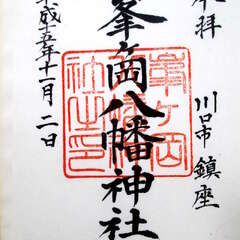 奉拝
川口市鎮座
峯ヶ岡八幡神社
平成十五年十一月二日
峯ヶ岡
八幡神
社之印